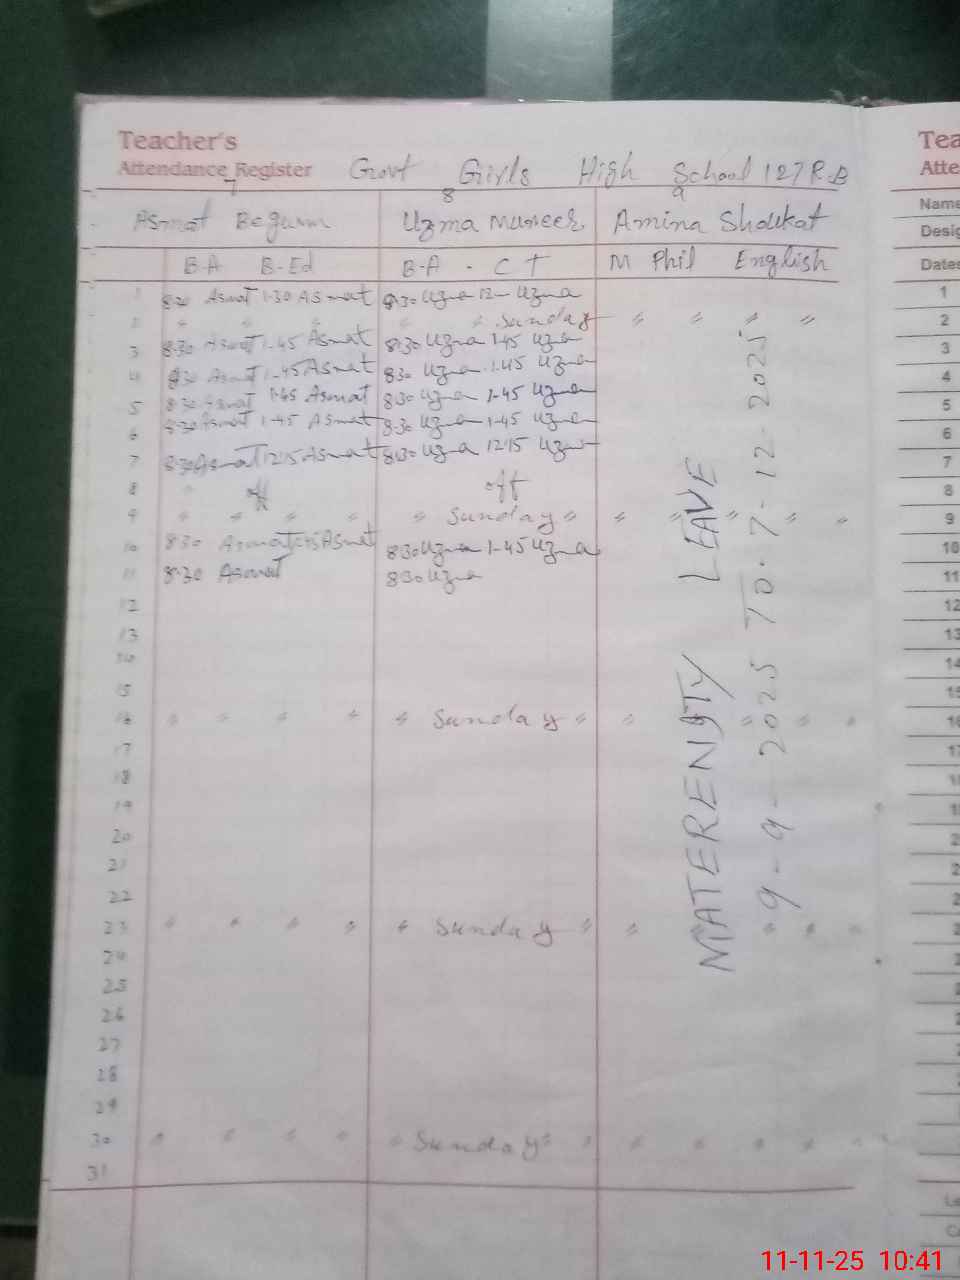 Teacher's
Attendance Register Govt Girls High School 127 R.B
7 8 9
Asmat Begum Uzma Muneer Amina Shoukat
B-A B-Ed B-A - CT M Phil English
1 8:30 Asmat 1-30 Asmat 8:30 Uzma 12- Uzma
2 " " " " " Sunday " " " "
3 8:30 Asmat 1-45 Asmat 8:30 Uzma 1-45 Uzma
4 8:30 Asmat 1-45 Asmat 8:30 Uzma 1-45 Uzma
5 8:30 Asmat 1-45 Asmat 8:30 Uzma 1-45 Uzma
6 8:30 Asmat 1-45 Asmat 8:30 Uzma 1-45 Uzma
7 8:30 Asmat 12:15 Asmat 8:30 Uzma 12:15 Uzma
8 off off
9 " " " " " Sunday " " " " " "
10 8:30 Asmat Asmat 8:30 Uzma 1-45 Uzma
11 8:30 Asmat 8:30 Uzma
12
13
14
15
16 " " " " " Sunday " " " " "
17
18
19
20
21
22
23 " " " " " Sunday " " " " "
24
25
26
27
28
29
30 " " " " " Sunday " " " " " " "
31
MATERENITY LEAVE
9-9-2025 TO 7-12-2025
Tea
Atte
Name
Desig
Dates
1
2
3
4
5
6
7
8
9
10
11
12
13
14
15
16
11-11-25 10:41